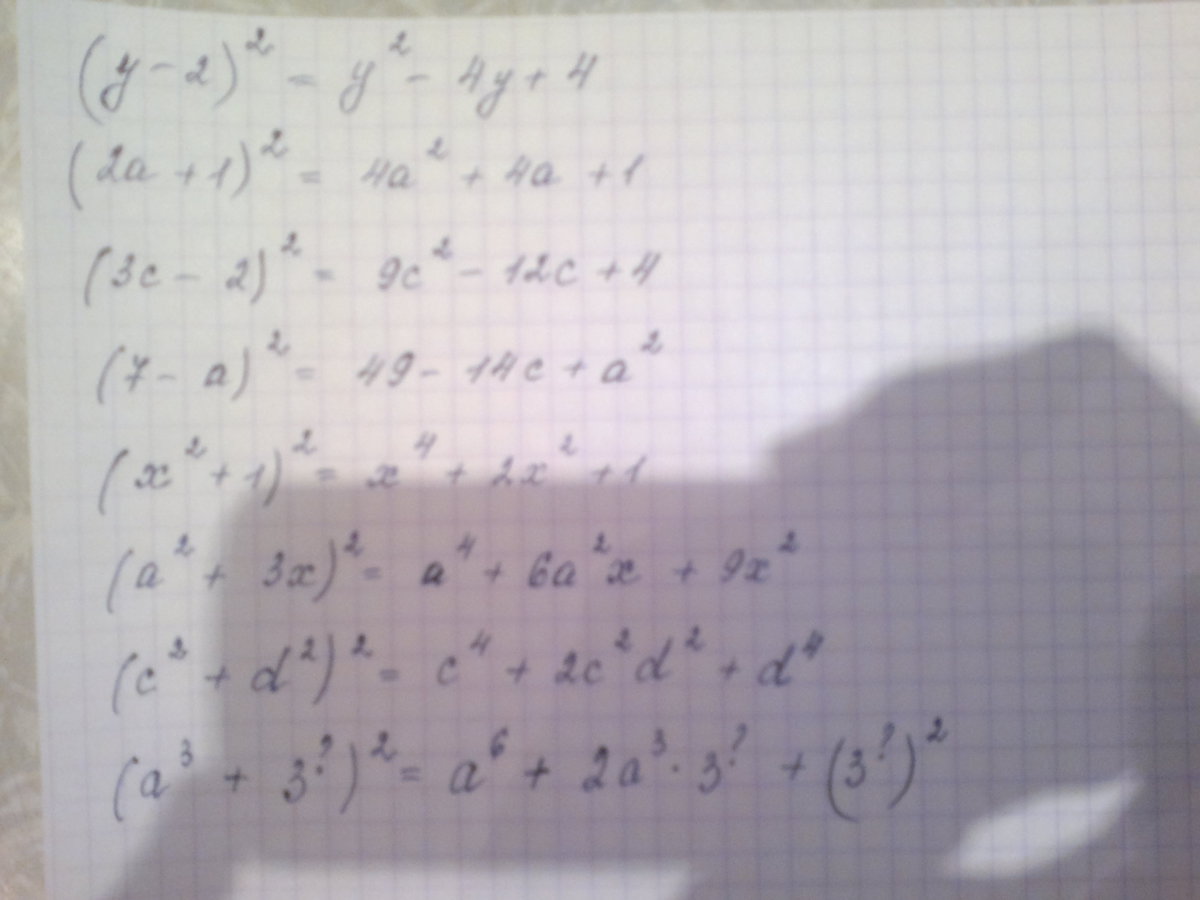 (y - 2)² = y² - 4y + 4
(2a + 1)² = 4a² + 4a + 1
(3c - 2)² = 9c² - 12c + 4
(7 - a)² = 49 - 14c + a²
(x² + 1)² = x⁴ + 2x² + 1
(a² + 3x)² = a⁴ + 6a²x + 9x²
(c² + d²)² = c⁴ + 2c²d² + d⁴
(a³ + 3^?)² = a⁶ + 2a³ · 3^? + (3^?)²